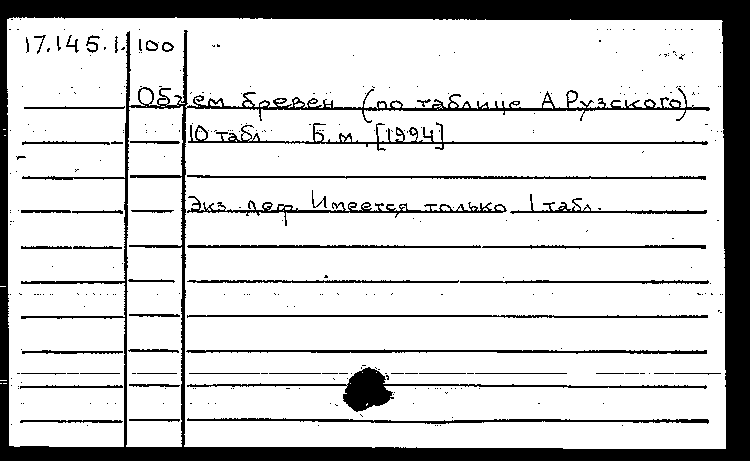 17.145.1.100
Объем бревен (по таблице А. Рузского).
10 табл. Б. м., [1994]
Экз. деф. Имеется только 1 табл.